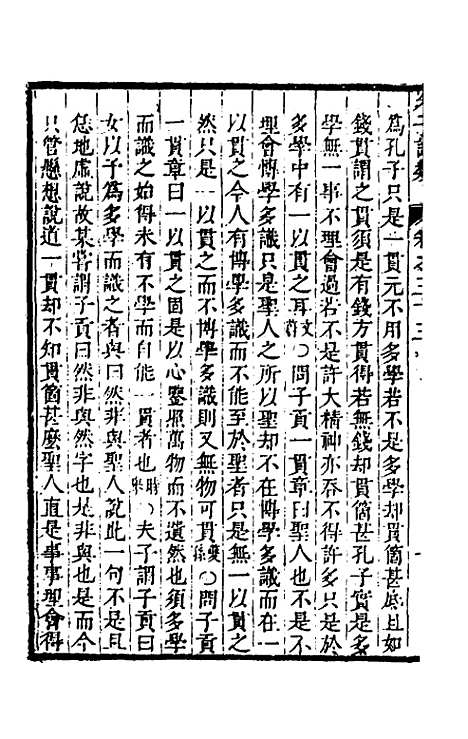 為孔子只是一貫元不用多學若不是多學却貫箇甚底且如
錢貫謂之貫須是有錢方貫得若無錢却貫箇甚孔子實是多
學無一事不理會過若不是許大精神亦吞不得許多只是於
多學中有一以貫之耳文蔚○問子貢一貫章曰聖人也不是不
理會博學多識只是聖人之所以聖却不在博學多識而在一
以貫之今人有博學多識而不能至於聖者只是無一以貫之
然只是一以貫之而不博學多識則又無物可貫夔孫○問子貢
一貫章曰一以貫之固是以心鑒照萬物而不遺然也須多學
而識之始得未有不學而自能一貫者也時舉○夫子謂子貢曰
女以予為多學而識之者與曰然非與聖人說此一句不是且
恁地虛說故某嘗謂子貢曰然非與然字也是非與也是而今
只管懸想說道一貫却不知貫箇甚麼聖人直是事事理會得